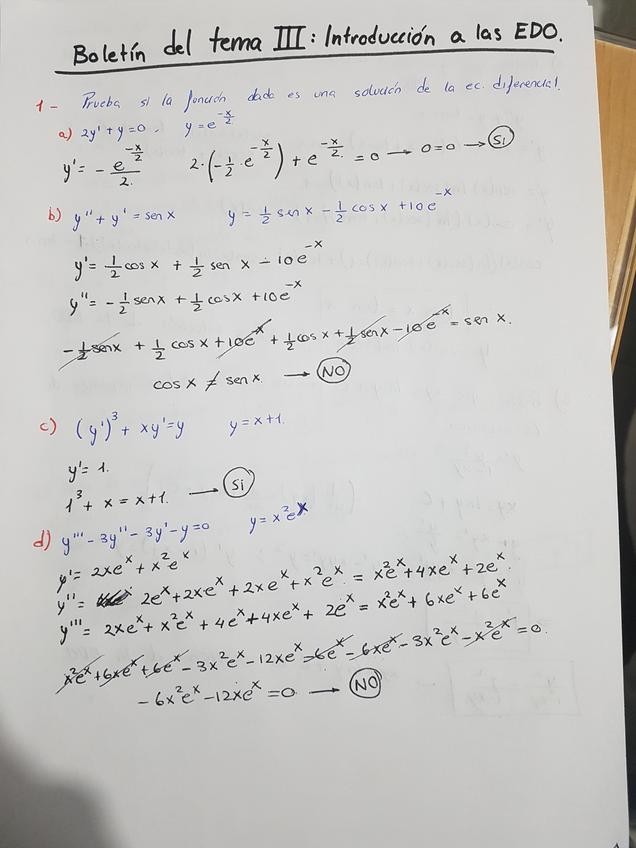 Boletín del tema III: Introducción a las EDO.
1- Prueba si la función dada es una solución de la ec. diferencial.
a) 2y' + y = 0. y = e^{-x/2}
y' = - e^{-x/2}/2. 2·(-1/2·e^{-x/2}) + e^{-x/2} = 0 → 0=0 → Si
b) y'' + y' = sen x y = 1/2 sen x - 1/2 cos x + 10e^{-x}
y' = 1/2 cos x + 1/2 sen x - 10e^{-x}
y'' = -1/2 sen x + 1/2 cos x + 10e^{-x}
-1/2 sen x + 1/2 cos x + 10e^{-x} + 1/2 cos x + 1/2 sen x - 10e^{-x} = sen x.
cos x ≠ sen x. → NO
c) (y')³ + xy' = y y = x+1.
y' = 1.
1³ + x = x+1. → Si
d) y''' - 3y'' - 3y' - y = 0 y = x²e^x
y' = 2xe^x + x²e^x
y'' = 2e^x + 2xe^x + 2xe^x + x²e^x = x²e^x + 4xe^x + 2e^x.
y''' = 2xe^x + x²e^x + 4e^x + 4xe^x + 2e^x = x²e^x + 6xe^x + 6e^x
x²e^x + 6xe^x + 6e^x - 3x²e^x - 12xe^x - 6e^x - 6xe^x - 3x²e^x - x²e^x = 0.
-6x²e^x - 12xe^x = 0. → NO